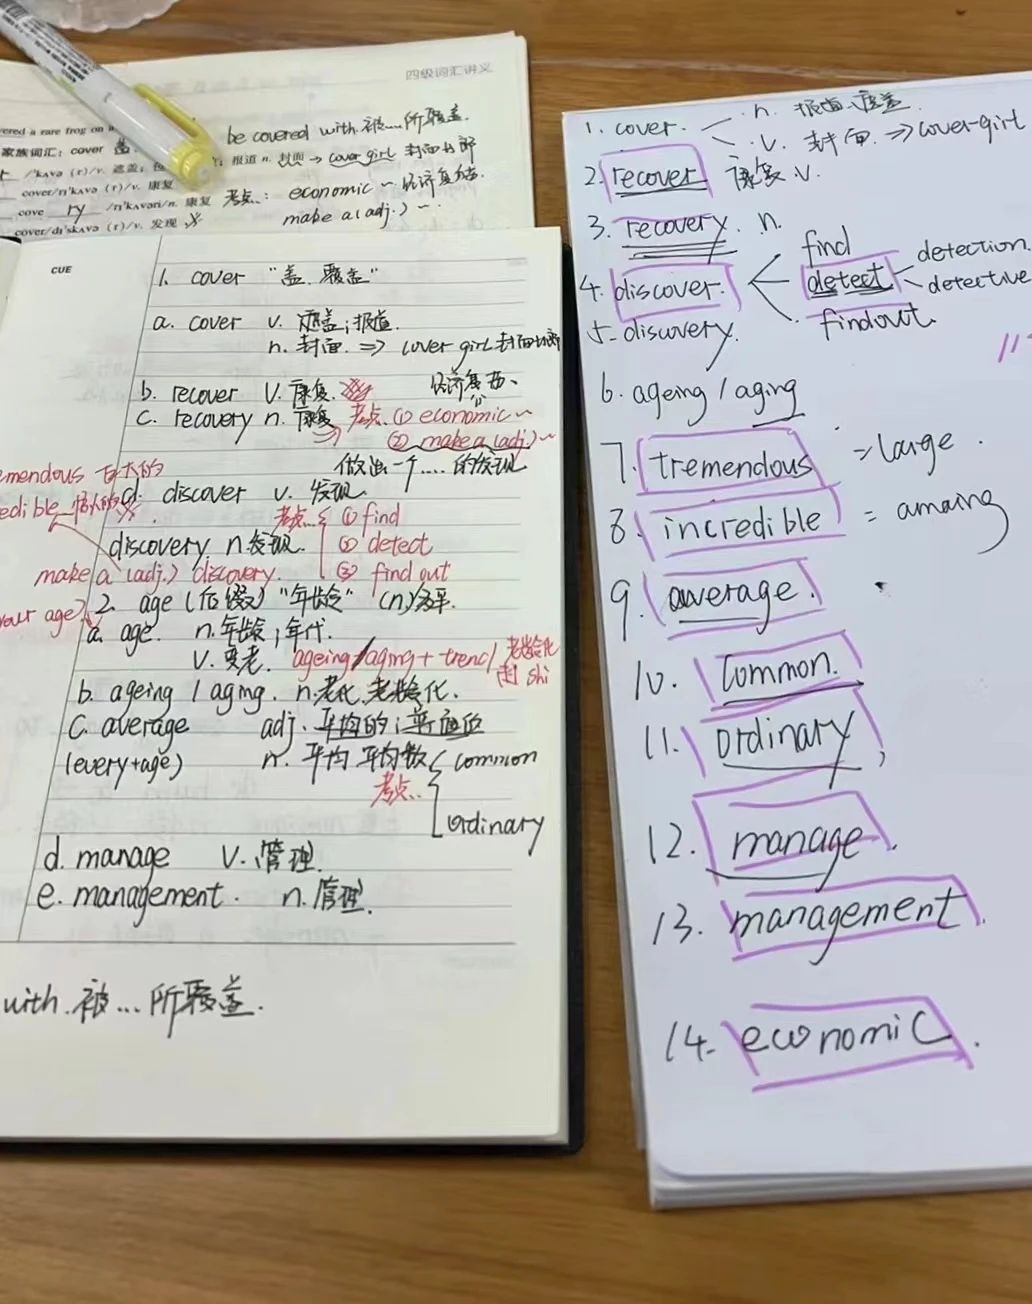 四级词汇讲义
vered a rare frog on a
be covered with 被...所覆盖.
家族词汇: cover 盖
/'kʌvə (r)/v. 遮盖; 报道 n. 封面 → cover girl 封面女郎
cover/rɪ'kʌvə (r)/v. 康复
考点: economic ~ 经济复苏
cove ry /rɪ'kʌvəri/n. 康复
make a (adj.) ~
cover/dɪ'skʌvə (r)/v. 发现
CUE
1. cover "盖, 覆盖"
a. cover v. 覆盖; 报道.
n. 封面. ⇒ cover girl 封面女郎
b. recover v. 康复
经济复苏
c. recovery n. 康复 考点 ① economic ~
② make a (adj.) ~
做出一个....的发现
emendous 巨大的
edible 惊人的
d. discover v. 发现
考点 ① find
discovery n. 发现. ② detect
make a (adj.) discovery. ③ find out
our age)
2. age (后缀) "年龄" (n)
a. age. n. 年龄; 年代.
v. 变老. ageing/aging + trend 老龄化趋 shi
b. ageing / aging. n. 老化, 老龄化.
c. average adj. 平均的; 普通的
(every+age) n. 平均 平均数 common
考点..
ordinary
d. manage v. 管理.
e. management. n. 管理.
with 被...所覆盖.
1. cover. n. 报道、覆盖
v. 封面 ⇒ cover-girl
2. recover 康复 v.
3. recovery. n.
find
4. discover. detect detection.
detective
find out.
5. discovery.
6. ageing / aging
7. tremendous = large.
8. incredible = amaing
9. average.
10. common.
11. ordinary,
12. manage.
13. management.
14. economic.